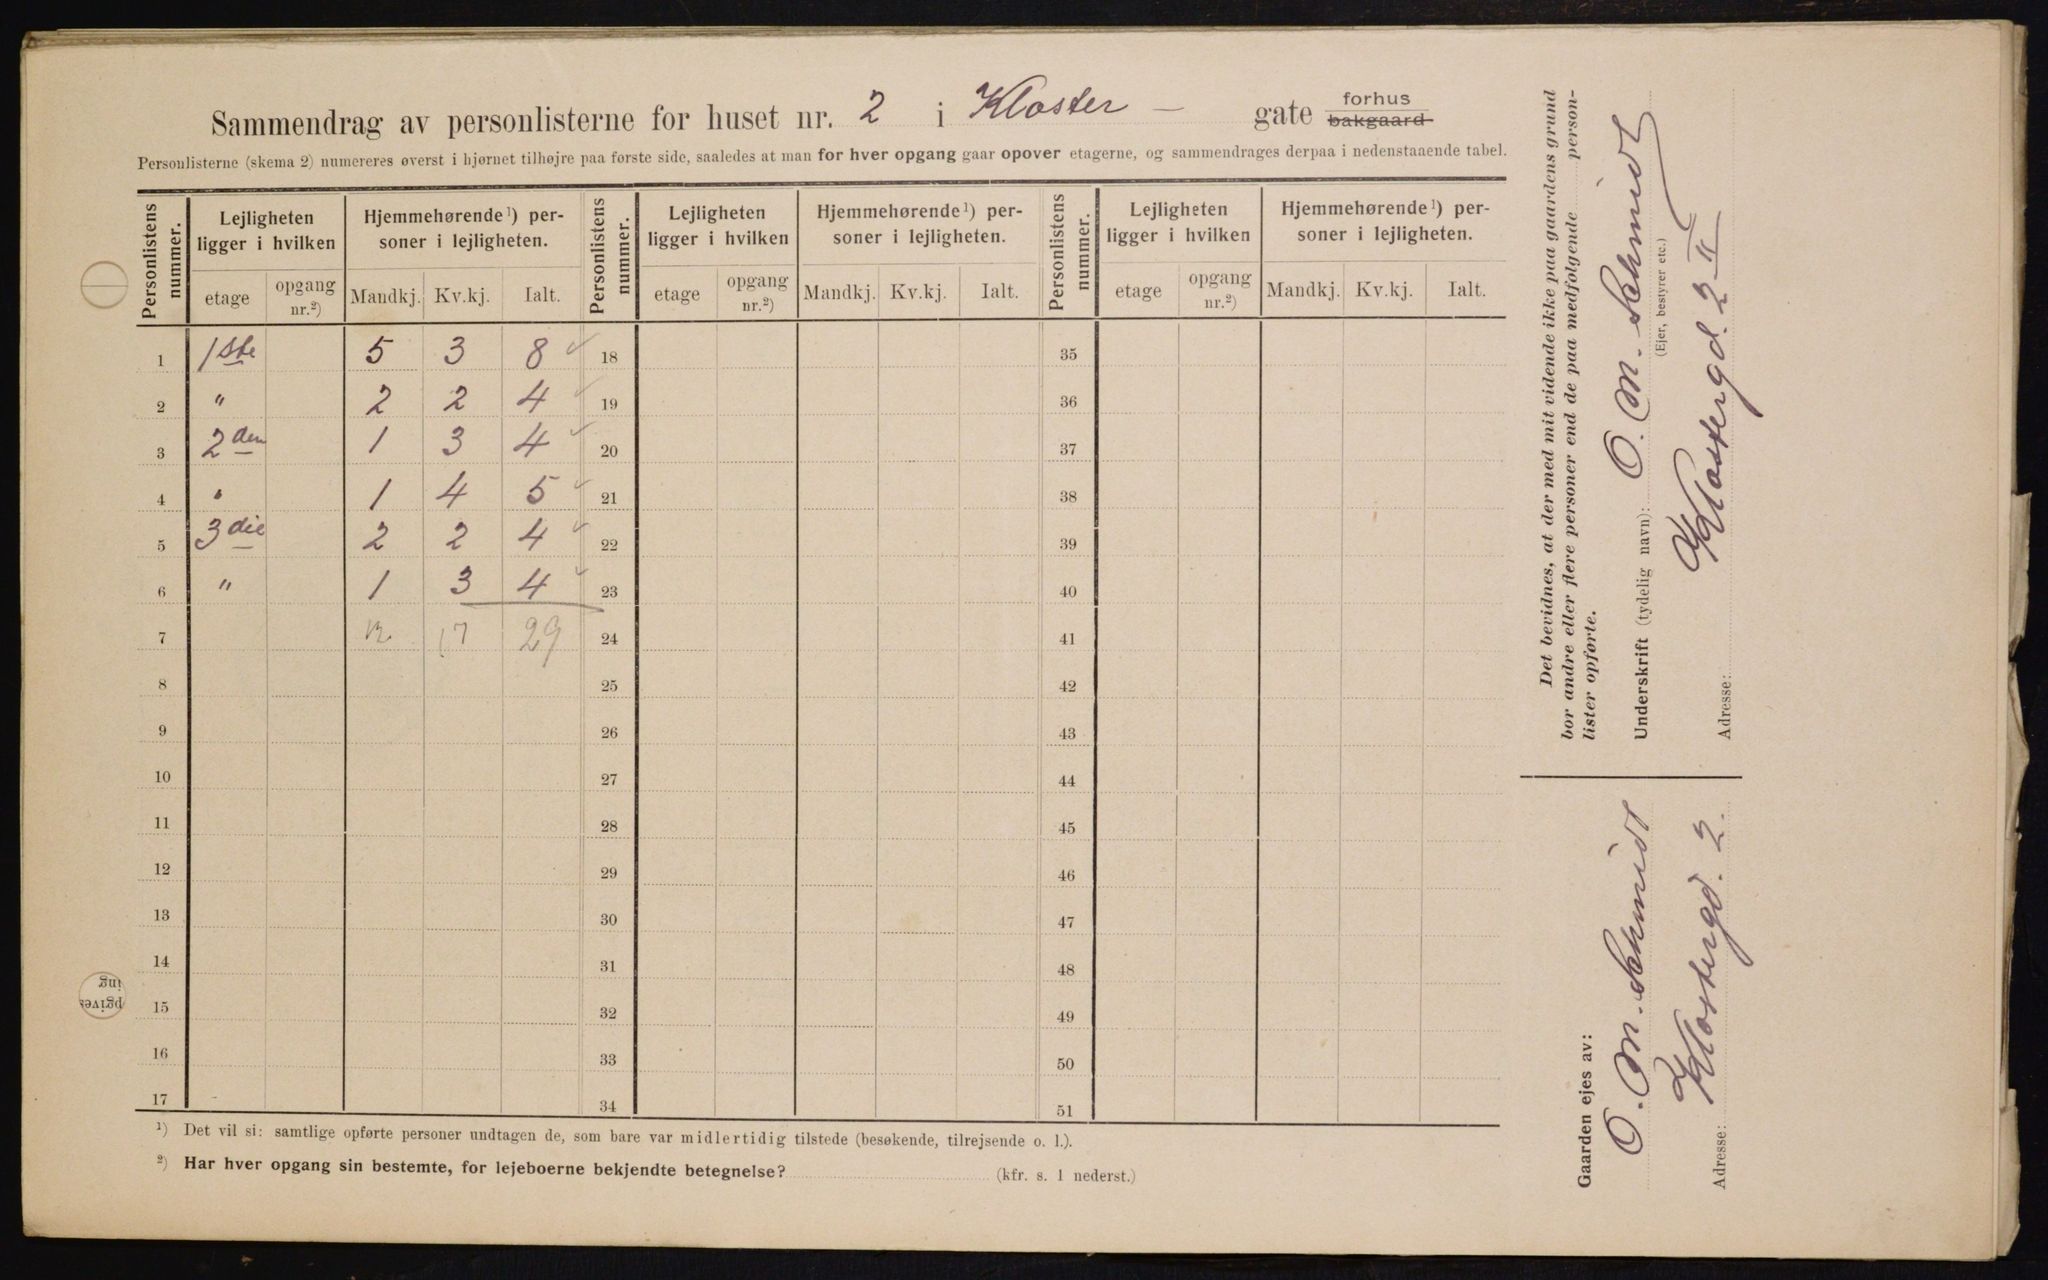 Sammendrag av personlisterne for huset nr. 2 i Kloster – gate forhus bakgaard
Personlisterne (skema 2) numereres øverst i hjørnet tilhøjre paa første side, saaledes at man for hver opgang gaar opover etagerne, og sammendrages derpaa i nedenstaaende tabel.
Personlistens nummer. Lejligheten ligger i hvilken Hjemmehørende ¹) personer i lejligheten. Personlistens nummer. Lejligheten ligger i hvilken Hjemmehørende ¹) personer i lejligheten. Personlistens nummer. Lejligheten ligger i hvilken Hjemmehørende ¹) personer i lejligheten.
etage opgang nr.²) Mandkj. Kv.kj. Ialt. etage opgang nr.²) Mandkj. Kv.kj. Ialt. etage opgang nr.²) Mandkj. Kv.kj. Ialt.
1 1ste 5 3 8 ✓ 18 35
2 " 2 2 4 ✓ 19 36
3 2den 1 3 4 ✓ 20 37
4 " 1 4 5 ✓ 21 38
5 3die 2 2 4 ✓ 22 39
6 " 1 3 4 ✓ 23 40
7 12 17 29 24 41
8 25 42
9 26 43
10 27 44
11 28 45
12 29 46
13 30 47
14 31 48
15 32 49
16 33 50
17 34 51
¹) Det vil si: samtlige opførte personer undtagen de, som bare var midlertidig tilstede (besøkende, tilrejsende o. l.).
²) Har hver opgang sin bestemte, for lejeboerne bekjendte betegnelse? (kfr. s. 1 nederst.)
Det bevidnes, at der med mit vidende ikke paa gaardens grund
bor andre eller flere personer end de paa medfølgende person-
lister opførte.
Underskrift (tydelig navn): O. M. Schmidt
(Ejer, bestyrer etc.)
Adresse: Klostergd. 2 II
Gaarden ejes av:
O. M. Schmidt
Adresse: Klostergd. 2.
pgives
ing